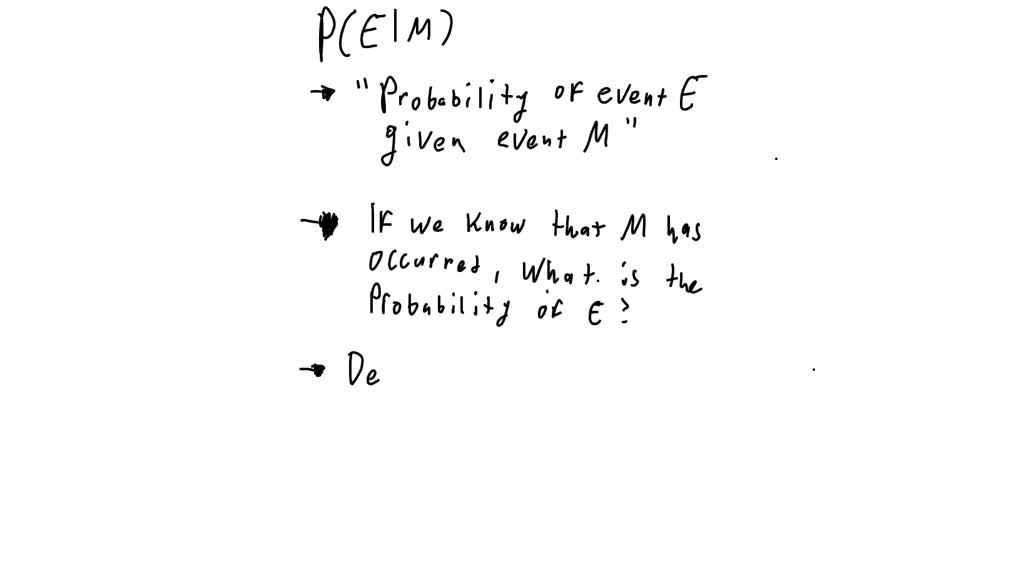 P(E|M)
→ "Probability of event E
given event M"
→ If we know that M has
occurred, what is the
Probability of E?
→ De